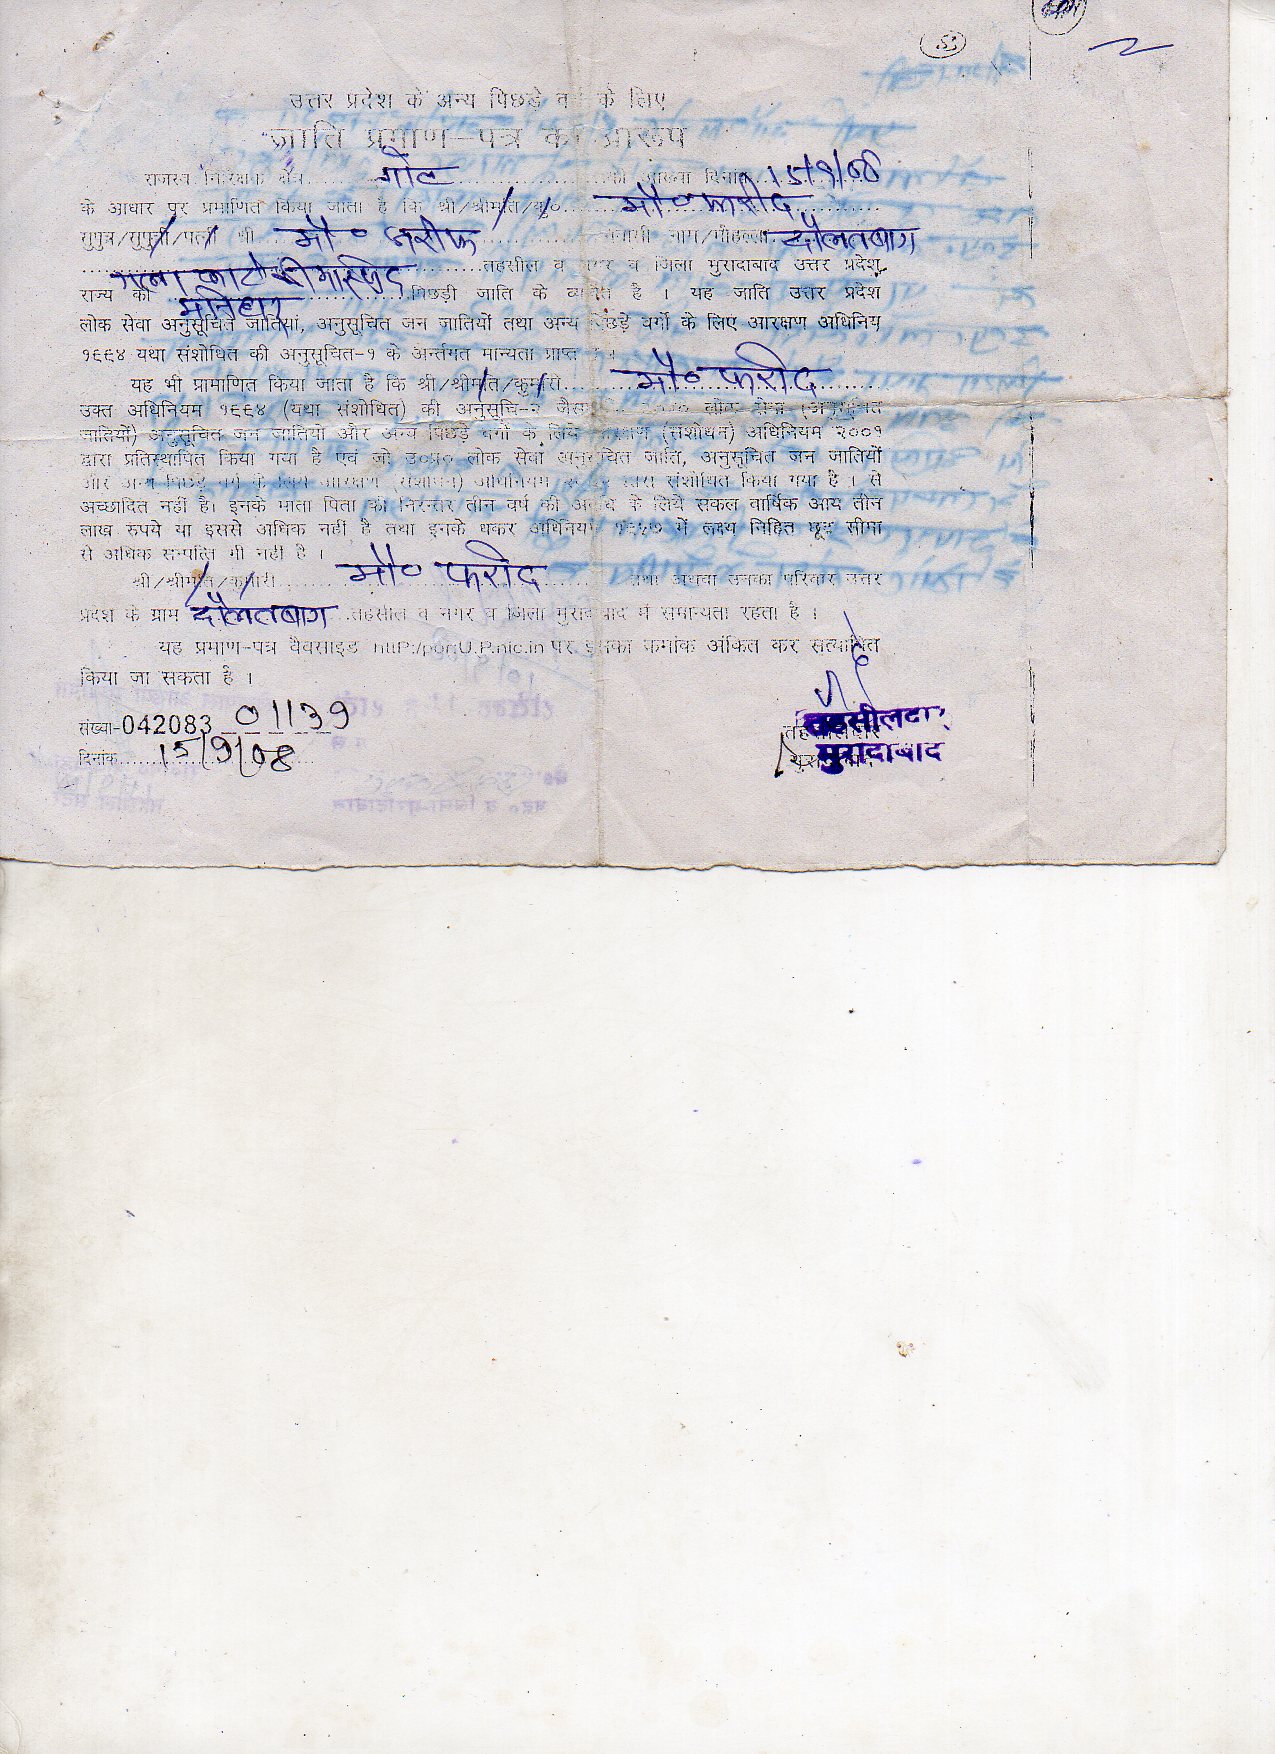 53
उत्तर प्रदेश के अन्य पिछड़े के लिए
जाति प्रमाण-पत्र का प्रारूप
गोल की आख्या दिनांक 15/9/08
के आधार पर प्रमाणित किया जाता है कि श्री/श्रीमति/कु० मौ० फरीद
सुपुत्र/सुपुत्री/पत्नी श्री मौ० दौलतबाग
तहसील व नगर व जिला मुरादाबाद उत्तर प्रदेश
राज्य की मनिहार पिछड़ी जाति के है । यह जाति उत्तर प्रदेश
लोक सेवा अनुसूचित जातियां, अनुसूचित जन जातियों तथा अन्य पिछड़े वर्गो के लिए आरक्षण अधिनिय
१९९४ यथा संशोधित की अनुसूचित-१ के अर्न्तगत मान्यता प्राप्त
यह भी प्रामाणित किया जाता है कि श्री/श्रीमति/कुमारी मौ० फरीद
उक्त अधिनियम १९९४ (यथा संशोधित) की अनुसूचि-२ लोक सेवा (अनुसूचित
जातियों) अनुसूचित जन जातियों और अन्य पिछड़े वर्गो के लिये (संशोधन) अधिनियम २००१
द्वारा प्रतिस्थापित किया गया है एवं जो उ०प्र० लोक सेवा अनुसूचित जाति, अनुसूचित जन जातियों
और अन्य पिछड़े वर्ग के लिये आरक्षण (संशोधन) अधिनियम द्वारा संशोधित किया गया है । से
अच्छादित नहीं है। इनके माता पिता की निरन्तर तीन वर्ष की के लिये सकल वार्षिक आय तीन
लाख रुपये या इससे अधिक नहीं है तथा इनके धकर अधिनियम में लक्ष्य निहित छूट सीमा
से अधिक सम्पत्ति भी नहीं है ।
श्री/श्रीमति/कुमारी मौ० फरीद तथा अथवा उनका परिवार उत्तर
प्रदेश के ग्राम दौलतबाग तहसील व नगर व जिला मुरादाबाद में समान्यता रहता है ।
यह प्रमाण-पत्र वैवसाइड पर इसका क्रमांक अंकित कर सत्यापित
किया जा सकता है ।
संख्या-042083 01139
दिनांक 15/9/08
तहसीलदार
मुरादाबाद